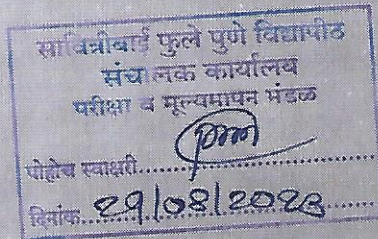 सावित्रीबाई फुले पुणे विद्यापीठ
संचालक कार्यालय
परीक्षा व मूल्यमापन मंडळ
पोहोच स्वाक्षरी
दिनांक 29/08/2023